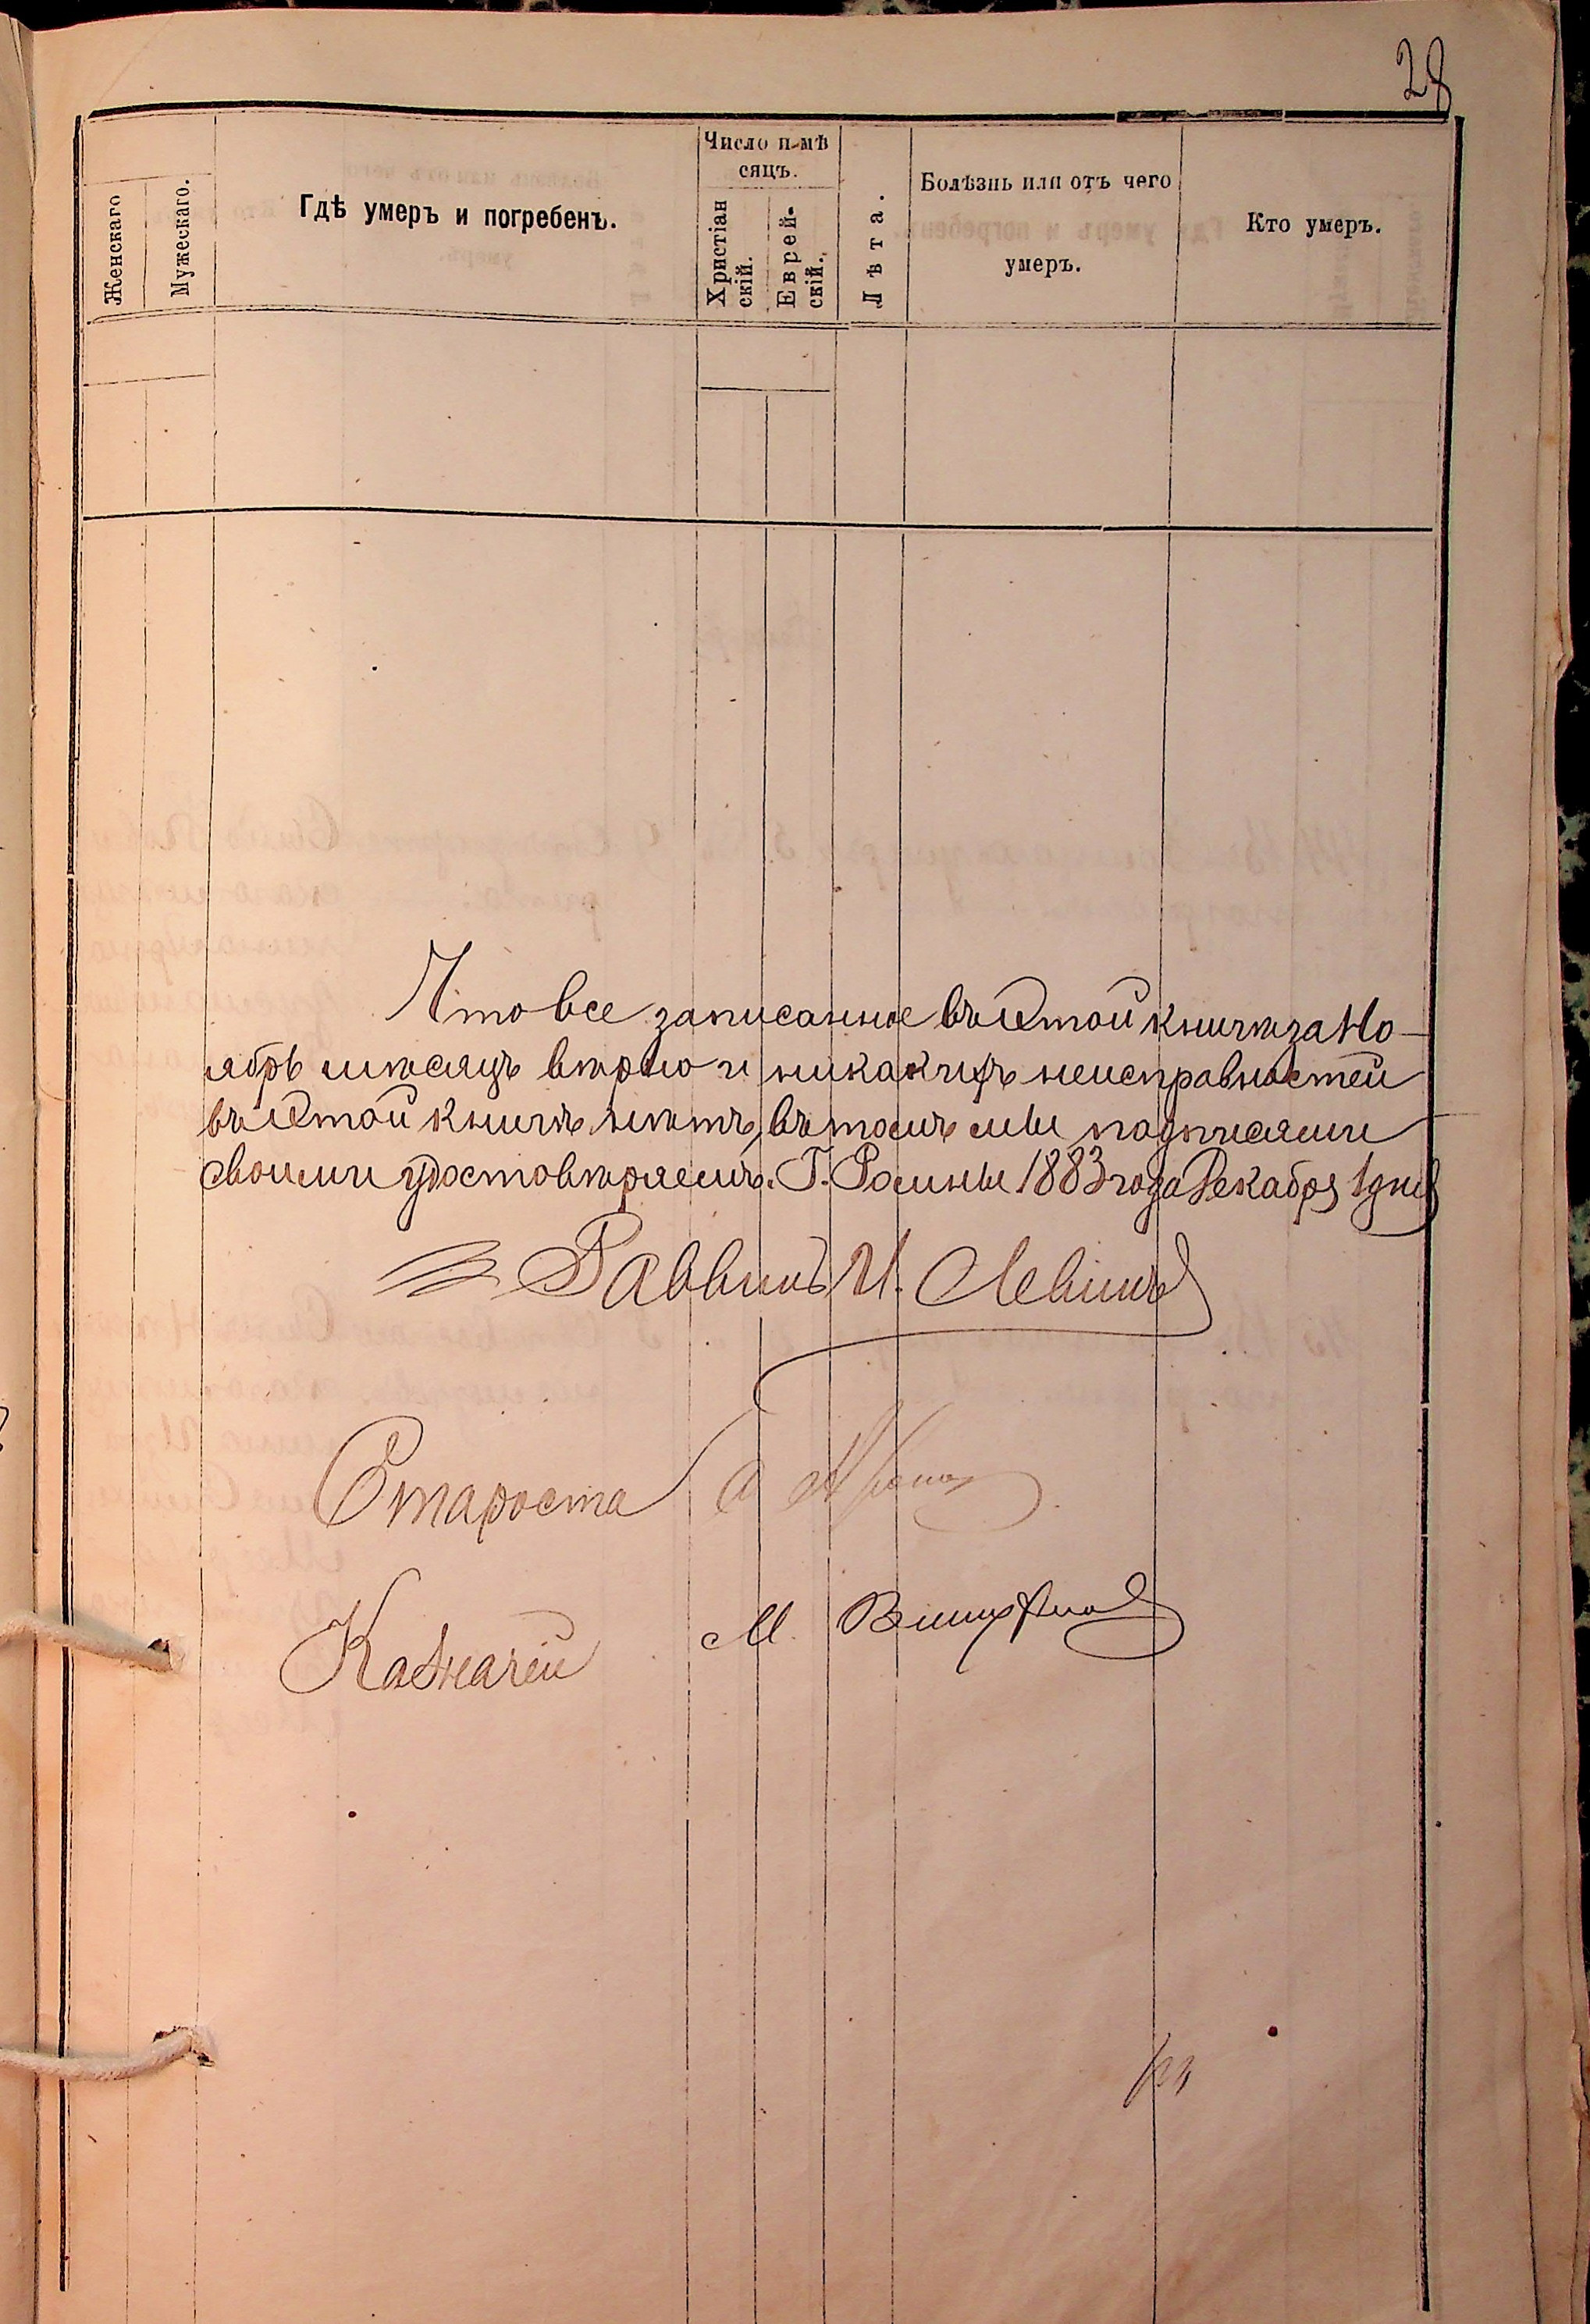 28
Число и мѣ
сяцъ.
Женскаго
Мужескаго.
Гдѣ умеръ и погребенъ.
Христіан
скій.
Еврей-
скій.
Лѣта.
Болѣзнь или отъ чего
умеръ.
Кто умеръ.
Что все записанное въ етой книгѣ за Но-
ябрь мѣсяцъ вѣрно и никакихъ неисправностей
въ етой книгѣ нѣтъ, въ томъ мы подписями
своими удостовѣряемъ. Г. Ромны 1883 года Декабря 1 дня
Раввинъ И. Левинъ
Староста
Казначей М.